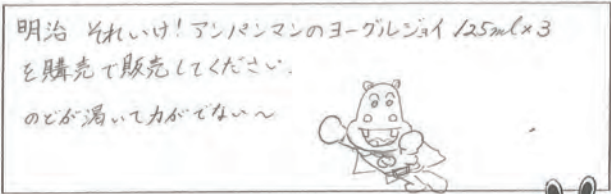 明治 それいけ!アンパンマンのヨーグルジョイ 125ml×3
を購売で販売してください.
のどが渇いて力がでない～